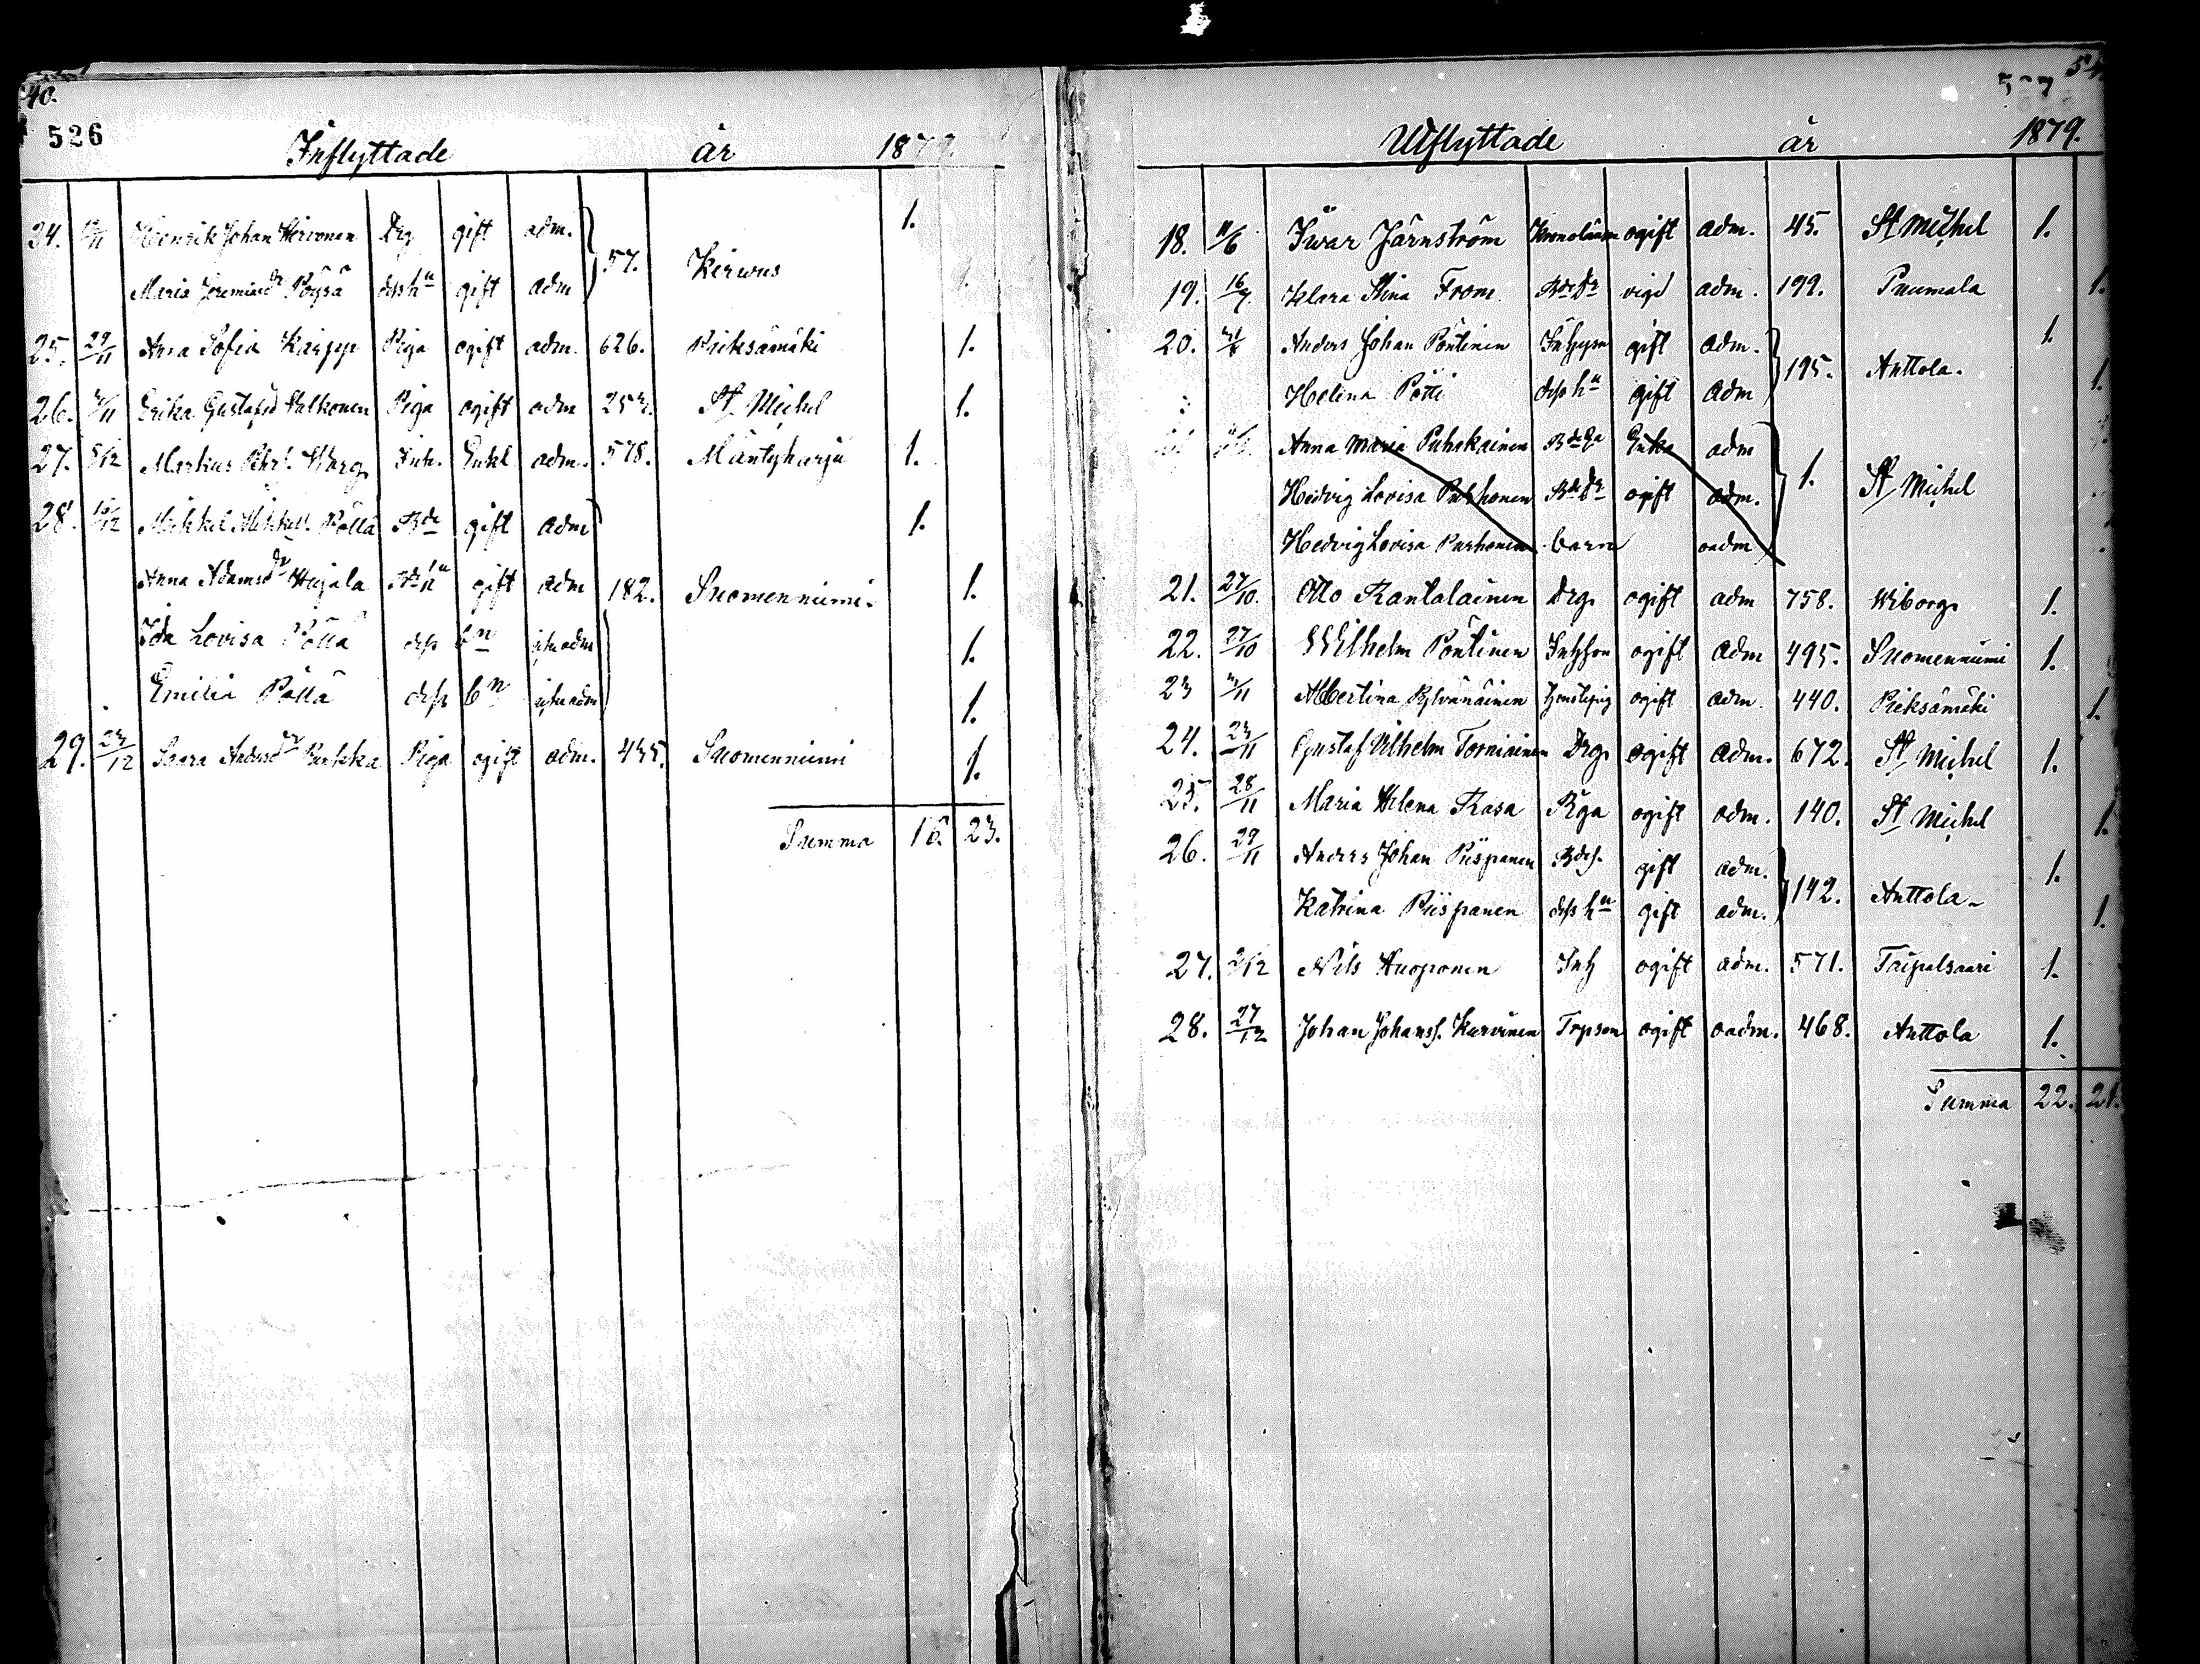 40.
526
Inflyttade år 1879.
24. Henrik Johan Hirvonen Drg gift adm. 57. Kirwus 1.
Maria Jeremiasdr Pöyså dess hu gift adm
25. 29/11 Anna Sofia Karpp Piga ogift adm. 626. Pieksämäki 1.
26. Erika Gustafsd Valkonen Piga ogift adm 253. St Michel 1.
27. 5/12 Markus Inh. Enkl adm. 578. Mäntyharju 1.
28. Mikkel Mikkels. Pöllä Bde gift adm 1.
Anna Adamsdr Hujala Bde hu gift adm 182. Suomenniemi. 1.
Ida Lovisa Pöllä dess bn icke adm 1.
Emilia Pöllä dess bn icke adm 1.
29. 23/12 Saara Andersdr Piga ogift adm. 435. Suomenniemi 1.
Summa 16. 23.
Utflyttade år 1879.
18. 11/6 Iwar Järnström ogift adm. 45. St Michel 1.
19. 16/7. Klara Stina From Bde Dr vigd adm. 199. Puumala 1.
20. Anders Johan Pöntinen gift adm. 195. Anttola. 1.
Helina Pötti dess hu gift adm 1.
Anna Maria Puhakainen Bde Ea Enka adm 1. St Michel
Hedvig Lovisa Parhonen Bde Dr ogift adm.
Hedvig Lovisa Parhonen barn oadm
21. 27/10. Otto Rantalainen Drg. ogift adm 758. Wiborg 1.
22. 27/10 Wilhelm Pöntinen Inhson ogift adm 495. Suomenniemi 1.
23 Albertina Pylvänäinen ogift adm. 440. Pieksämäki 1.
24. 23/11 Gustaf Vilhelm Torniainen Drg. ogift adm. 672. St Michel 1.
25. 28/11 Maria Helena Rasa Piga ogift adm. 140. St Michel 1.
26. 29/11 Anders Johan Piispanen Bdes. gift adm. 142. Anttola 1.
Katrina Piispanen dess hu gift adm. 1.
27. 2/12 Nils Auoponen Inh ogift adm. 571. Taipalsaari 1.
28. 27/12 Johan Johanss. Karvinen Torpson ogift oadm. 468. Anttola 1.
Summa 22. 21.